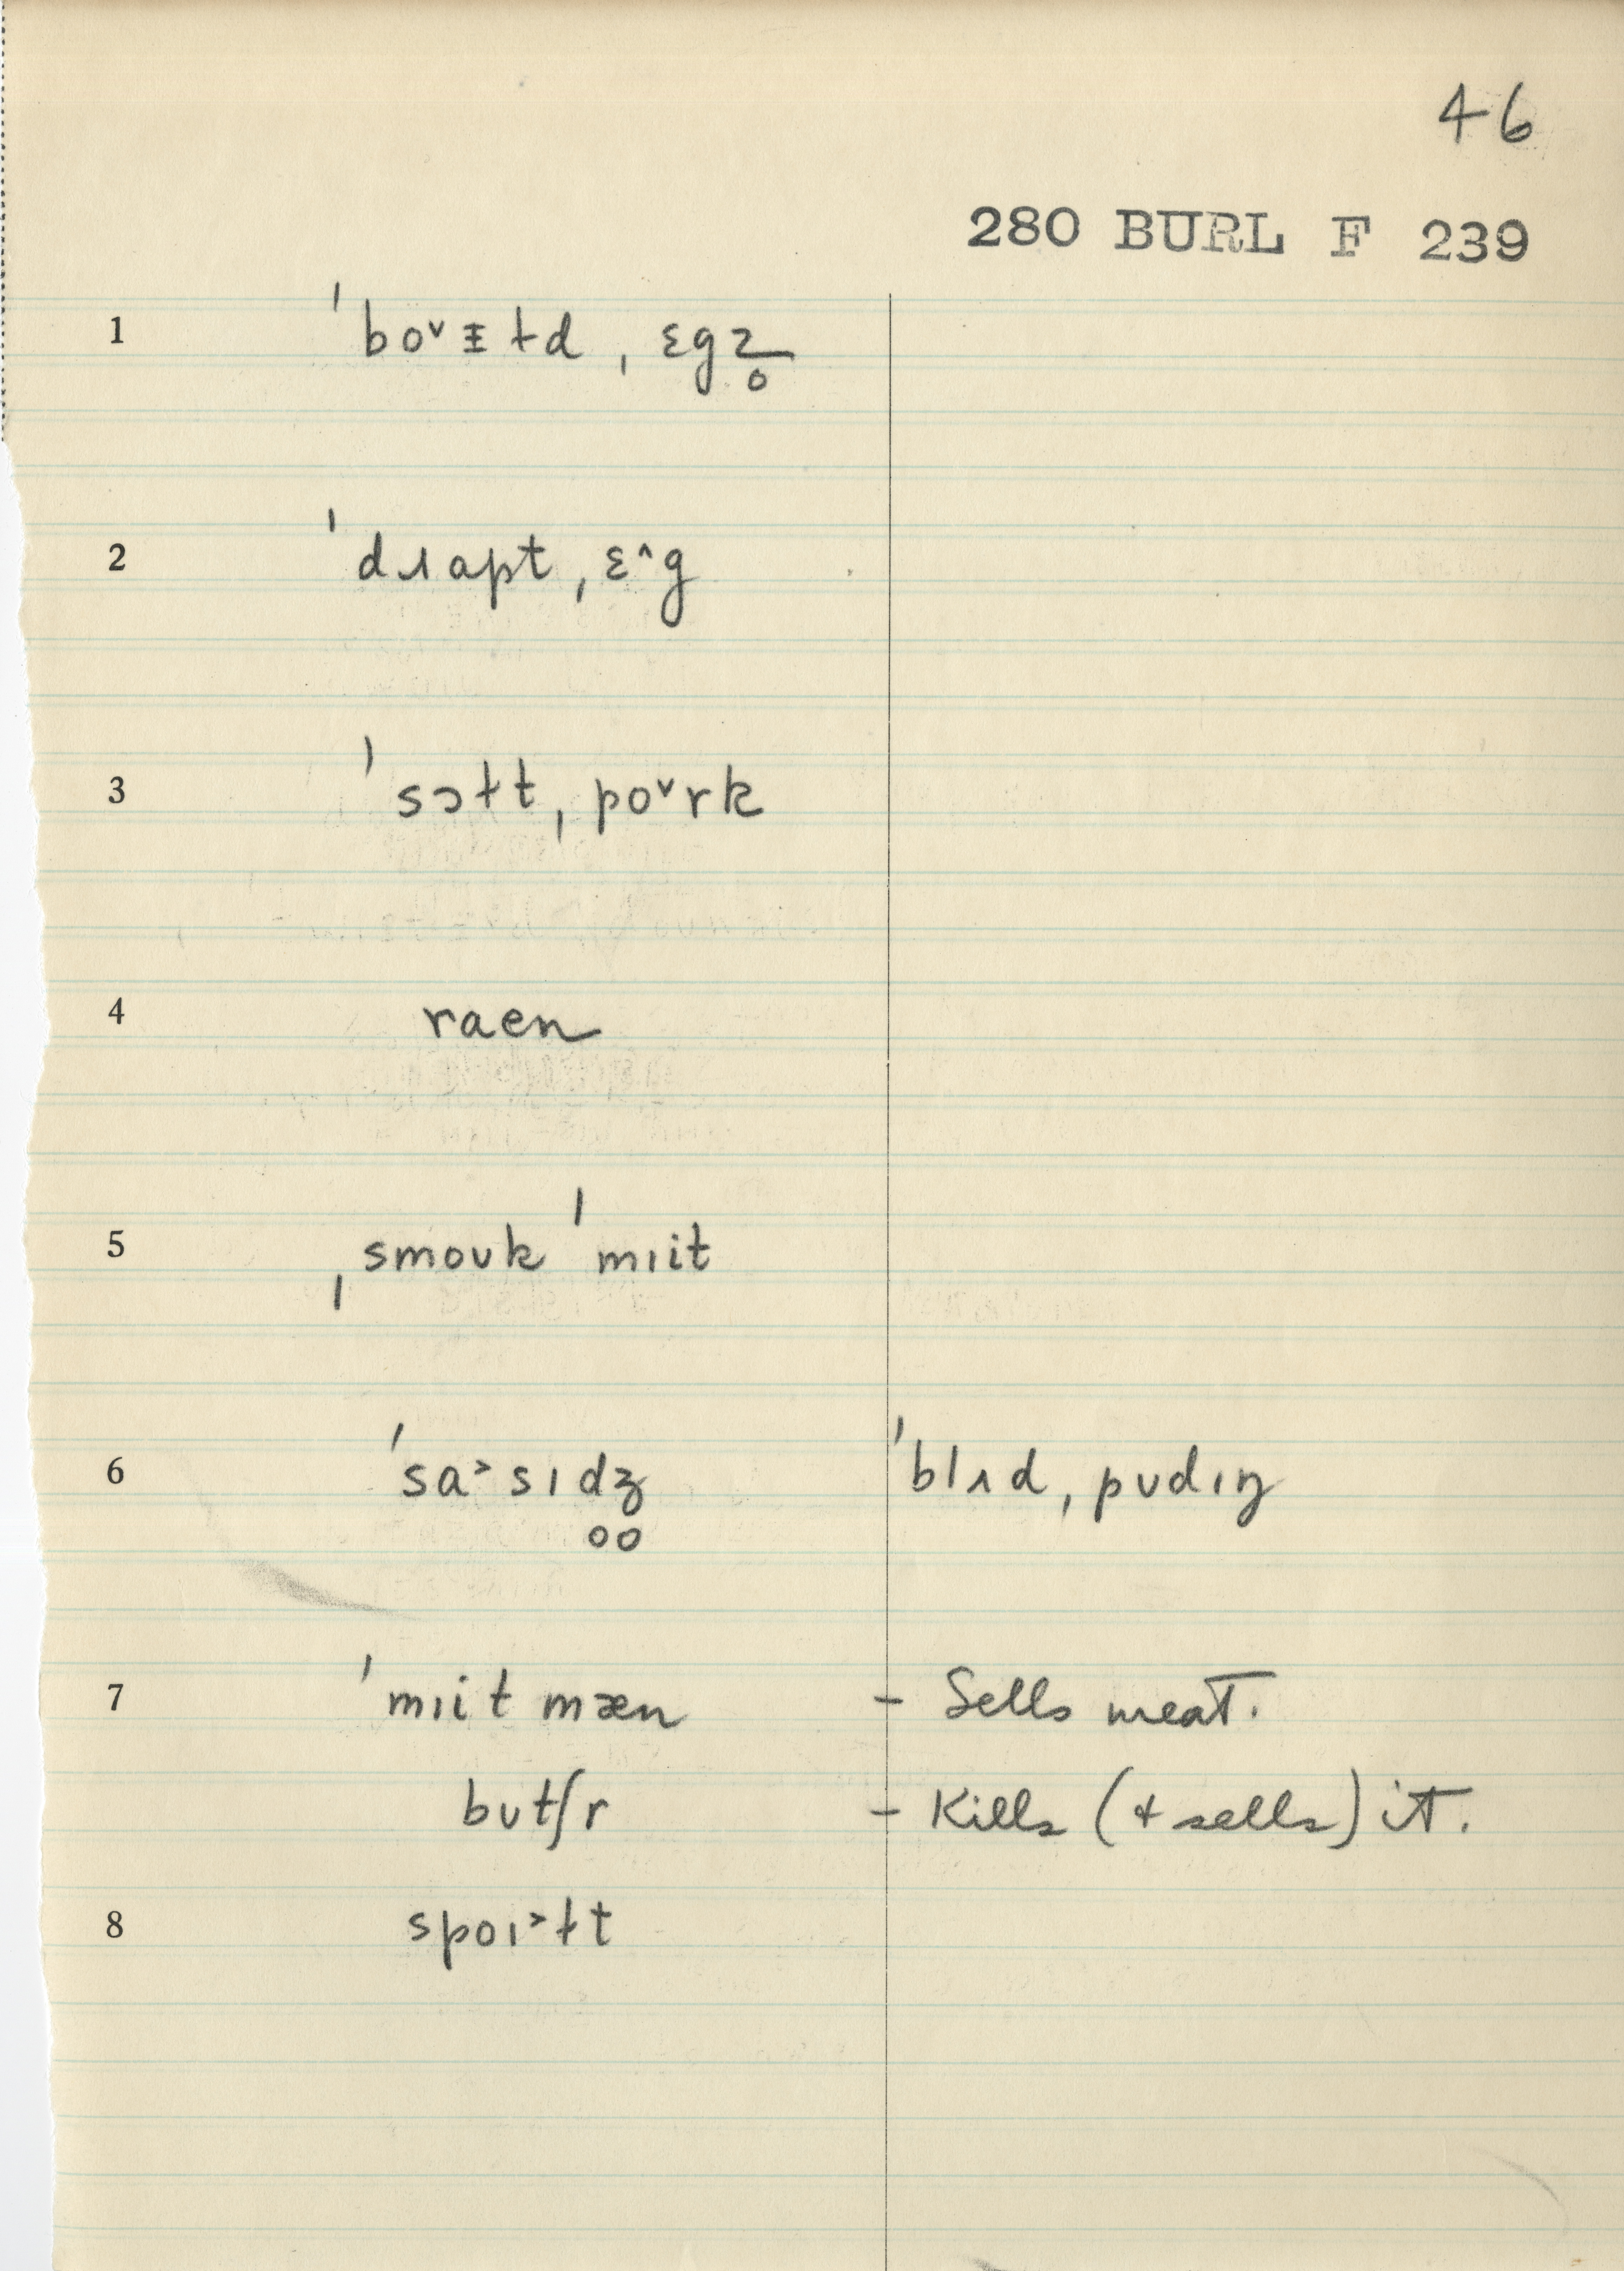 46
280 BURL F 239
1 ˈbo˅ɪ̵ɫd ˌɛgz̥
2 ˈdɹapt ˌɛ^g
3 ˈsɔɫt ˌpo˅rk
4 raen
5 ˌsmoʊk ˈmɪit
6 ˈsa˃sɪd̥ʒ̥ ˈblʌd ˌpʊdɪŋ
7 ˈmɪit mæn – Sells meat.
bʊtʃr – Kills (+ sells) it.
8 spoɪ˃ɫt